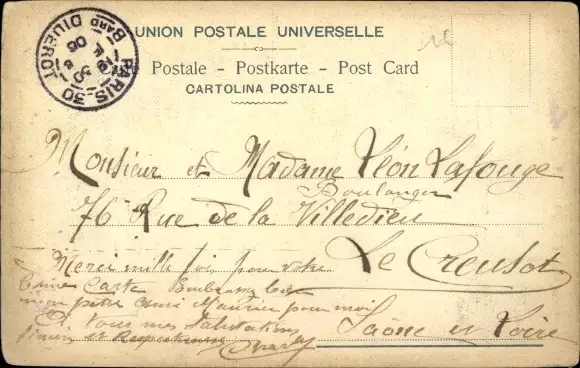 UNION POSTALE UNIVERSELLE
Carte Postale - Postkarte - Post Card
CARTOLINA POSTALE
PARIS 30
BARD DIDEROT
Monsieur et Madame Léon Lafouge
Boulanger
76 Rue de la Villedieu
Le Creusot
Saône et Loire
Merci mille fois pour votre
Carte Embrassez bien
mon petit ami Maurice pour moi
Vous mes Salutations
et respectueuses
Charles